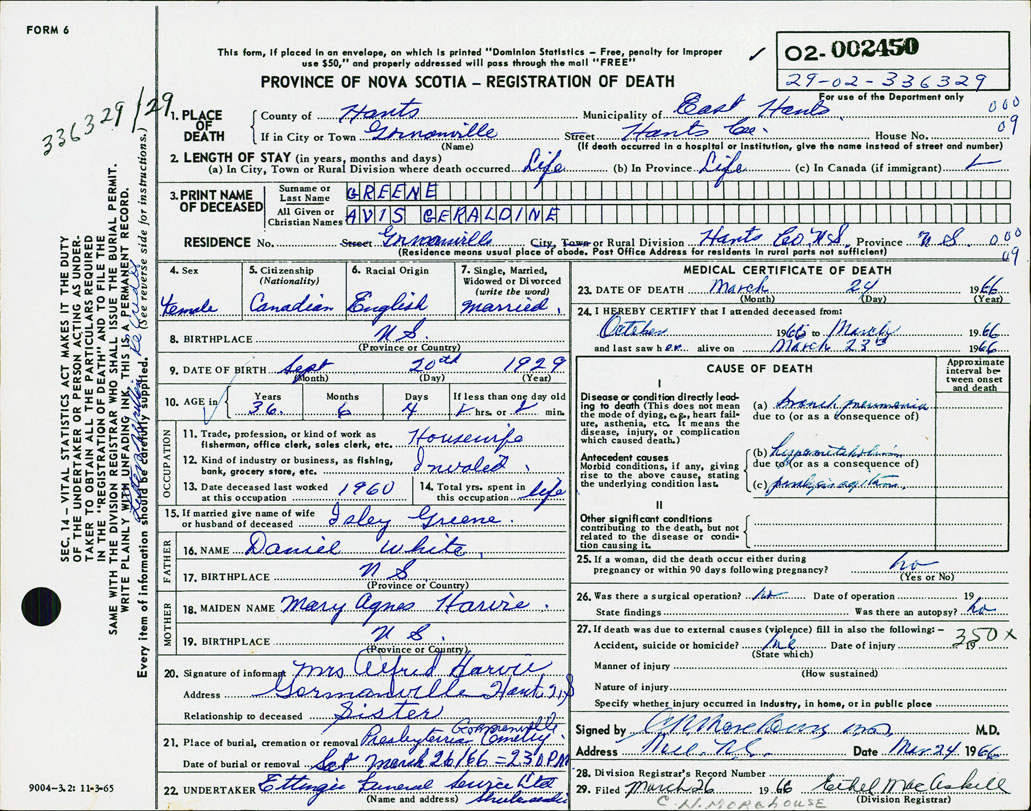 FORM 6
This form, if placed in an envelope, on which is printed "Dominion Statistics – Free, penalty for improper
use $50," and properly addressed will pass through the mail "FREE"
02-002450
29-02-336329
For use of the Department only
PROVINCE OF NOVA SCOTIA – REGISTRATION OF DEATH
336329/29
1. PLACE OF DEATH
County of Hants Municipality of East Hants 000
If in City or Town Street Hants Co. House No. 09
(Name) (If death occurred in a hospital or institution, give the name instead of street and number)
2. LENGTH OF STAY (in years, months and days)
(a) In City, Town or Rural Division where death occurred Life (b) In Province Life (c) In Canada (if immigrant)
3. PRINT NAME OF DECEASED
Surname or Last Name GREENE
All Given or Christian Names AVIS GERALDINE
RESIDENCE No. Street City, Town or Rural Division Hants Co. N.S. Province N.S. 000
(Residence means usual place of abode. Post Office Address for residents in rural parts not sufficient) 09
4. Sex Female
5. Citizenship (Nationality) Canadian
6. Racial Origin English
7. Single, Married, Widowed or Divorced (write the word) Married.
8. BIRTHPLACE N.S.
(Province or Country)
9. DATE OF BIRTH Sept 20th 1929
(Month) (Day) (Year)
10. AGE in Years Months Days If less than one day old
36 6 4 hrs. or min.
OCCUPATION
11. Trade, profession or kind of work as fisherman, office clerk, sales clerk, etc. Housewife
12. Kind of industry or business, as fishing, bank, grocery store, etc. Invaled.
13. Date deceased last worked at this occupation 1960
14. Total yrs. spent in this occupation life
15. If married give name of wife or husband of deceased Isley Greene.
FATHER
16. NAME Daniel White.
17. BIRTHPLACE N S
(Province or Country)
MOTHER
18. MAIDEN NAME Mary Agnes Harvie.
19. BIRTHPLACE N S.
(Province or Country)
20. Signature of informant Mrs Alfred Harvie
Address Gormanville Hants N.S
Relationship to deceased Sister
21. Place of burial, cremation or removal Presbyterian Cemetery
Date of burial or removal Sat March 26/66
22. UNDERTAKER Ettinger Funeral Service Ltd
(Name and address) Shubenacadie
MEDICAL CERTIFICATE OF DEATH
23. DATE OF DEATH March 24 1966
(Month) (Day) (Year)
24. I HEREBY CERTIFY that I attended deceased from:
October to March 1966
and last saw her alive on March 23rd 1966
CAUSE OF DEATH
Approximate interval between onset and death
I
Disease or condition directly leading to death (This does not mean the mode of dying, e.g., heart failure, asthenia, etc. It means the disease, injury, or complication which caused death.)
(a) bronch pneumonia
due to (or as a consequence of)
Antecedent causes
Morbid conditions, if any, giving rise to the above cause, stating the underlying condition last.
(b)
due to (or as a consequence of)
(c)
II
Other significant conditions
contributing to the death, but not related to the disease or condition causing it.
25. If a woman, did the death occur either during pregnancy or within 90 days following pregnancy? no
(Yes or No)
26. Was there a surgical operation? no Date of operation 19
State findings Was there an autopsy? no
27. If death was due to external causes (violence) fill in also the following:– 350X
Accident, suicide or homicide? Date of injury 19
(State which)
Manner of injury
(How sustained)
Nature of injury
Specify whether injury occurred in Industry, in home, or in public place
Signed by M.D.
Address Date Mar 24 1966
28. Division Registrar's Record Number
29. Filed March 26 1966 Ethel MacAskill
(Division Registrar)
C.N. MOREHOUSE
SEC. 14 – VITAL STATISTICS ACT MAKES IT THE DUTY
OF THE UNDERTAKER OR PERSON ACTING AS UNDER-
TAKER TO OBTAIN ALL THE PARTICULARS REQUIRED
IN THE "REGISTRATION OF DEATH" AND TO FILE THE
SAME WITH THE DIVISION REGISTRAR WHO SHALL ISSUE THE BURIAL PERMIT.
WRITE PLAINLY WITH UNFADING INK. THIS IS A PERMANENT RECORD.
Every item of information should be carefully supplied. (See reverse side for instructions.)
9004–3.21 11-3-65